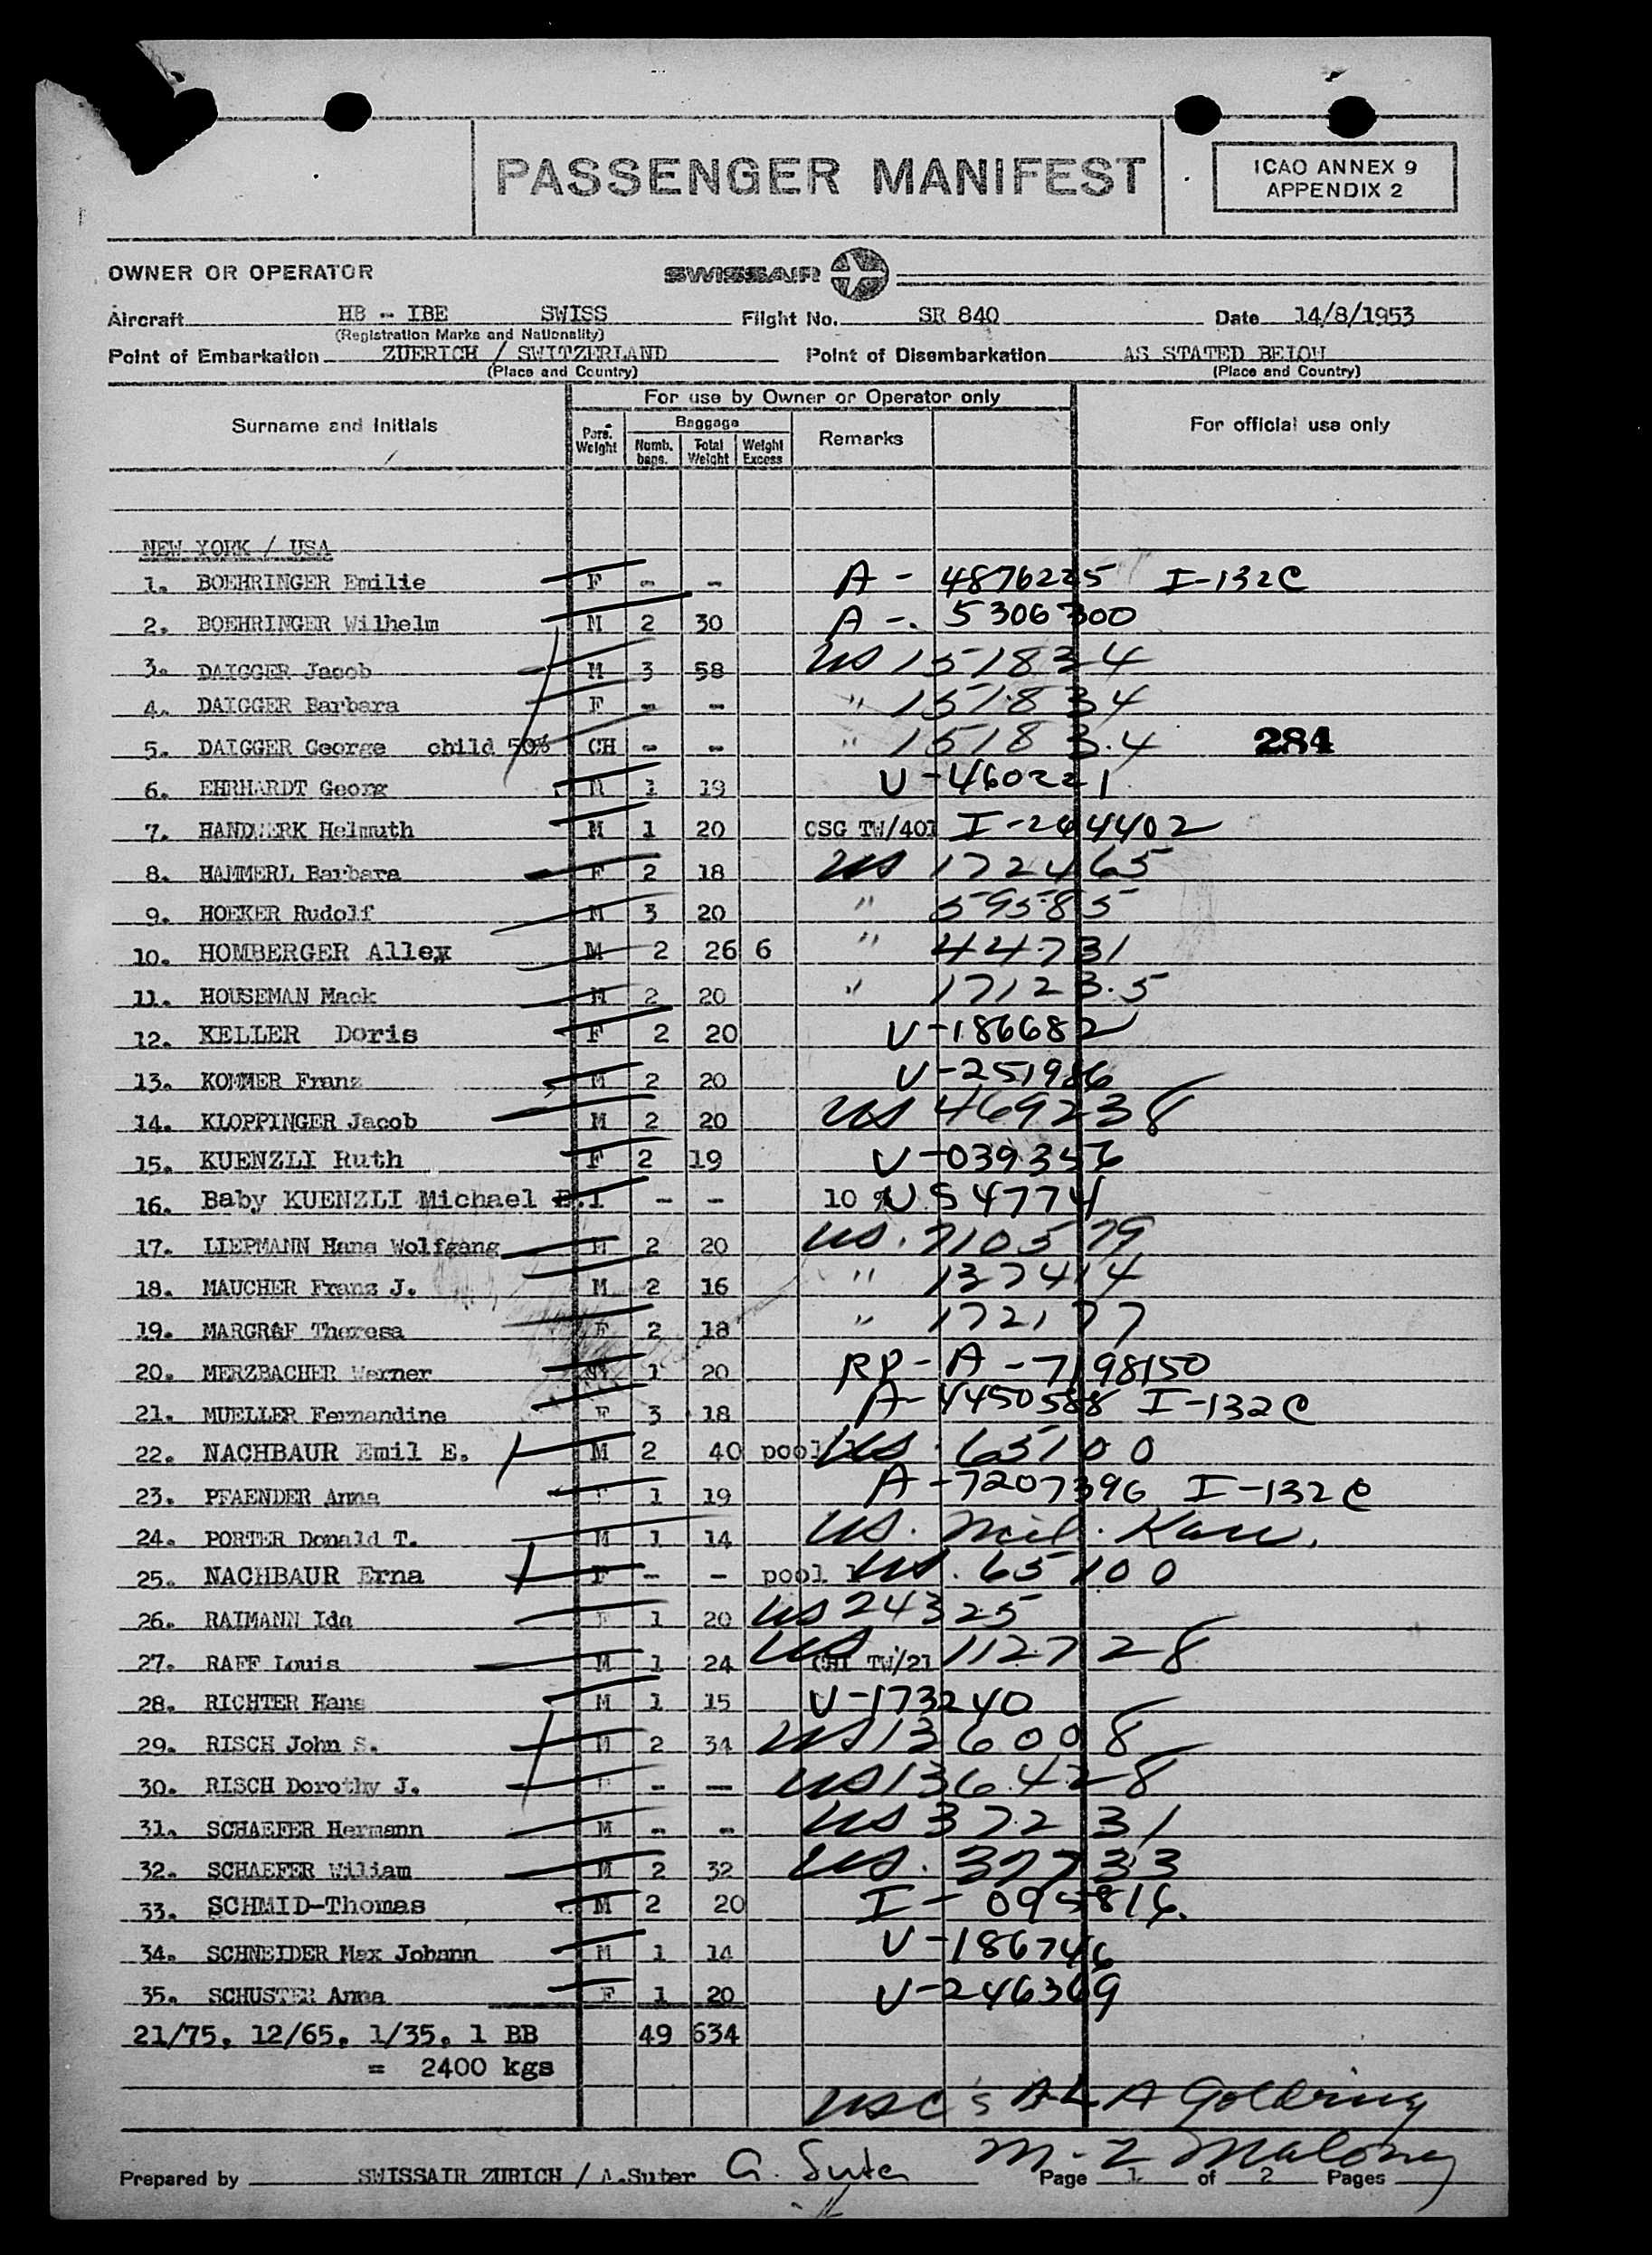 PASSENGER MANIFEST
ICAO ANNEX 9
APPENDIX 2
OWNER OR OPERATOR SWISSAIR
Aircraft HB - IBE SWISS Flight No. SR 840 Date 14/8/1953
(Registration Marks and Nationality)
Point of Embarkation ZUERICH / SWITZERLAND Point of Disembarkation AS STATED BELOW
(Place and Country) (Place and Country)
For use by Owner or Operator only
Surname and Initials Pers. Weight Baggage Numb. bags. Total Weight Weight Excess Remarks For official use only
NEW YORK / USA
1. BOEHRINGER Emilie F - - A - 4876225 I-132C
2. BOEHRINGER Wilhelm M 2 30 A - 5306300
3. DAIGGER Jacob M 3 58 US 151834
4. DAIGGER Barbara F - - " 151834
5. DAIGGER George child 50% CH - - " 151834 284
6. EHRHARDT Georg M 1 19 V-460221
7. HANDWERK Helmuth M 1 20 CSG TW/401 I-264402
8. HAMMERL Barbara F 2 18 US 172465
9. HOEKER Rudolf M 3 20 " 59585
10. HOMBERGER Allex M 2 26 6 " 44731
11. HOUSEMAN Mack M 2 20 " 171235
12. KELLER Doris F 2 20 V-186682
13. KOMMER Franz M 2 20 V-251986
14. KLOPPINGER Jacob M 2 20 US 469238
15. KUENZLI Ruth F 2 19 V-039356
16. Baby KUENZLI Michael B.I - - 10 % US 4774
17. LIEPMANN Hans Wolfgang M 2 20 US. 710579
18. MAUCHER Franz J. M 2 16 " 137414
19. MARGRAF Theresa F 2 18 " 172177
20. MERZBACHER Werner M 1 20 RP - A - 7198150
21. MUELLER Fernandine F 3 18 A-4450588 I-132C
22. NACHBAUR Emil E. M 2 40 pool 1 US. 65100
23. PFAENDER Anna F 1 19 A-7207396 I-132C
24. PORTER Donald T. M 1 14 US. Mil.
25. NACHBAUR Erna F - - pool 1 US. 65100
26. RAIMANN Ida F 1 20 US 24325
27. RAFF Louis M 1 24 US CHI TW/21 112728
28. RICHTER Hans M 1 15 V-173240
29. RISCH John S. M 2 34 US 136008
30. RISCH Dorothy J. F - - US 136428
31. SCHAEFER Hermann M - - US 37231
32. SCHAEFER Wiliam M 2 32 US. 37733
33. SCHMID-Thomas M 2 20 I - 095816.
34. SCHNEIDER Max Johann M 1 14 V-186746
35. SCHUSTER Anna F 1 20 V-246369
21/75, 12/65, 1/35, 1 BB 49 634
= 2400 kgs
USC's A-L A Goldring
M-Z Maloney
Prepared by SWISSAIR ZURICH / A.Suter A. Suter Page 1 of 2 Pages